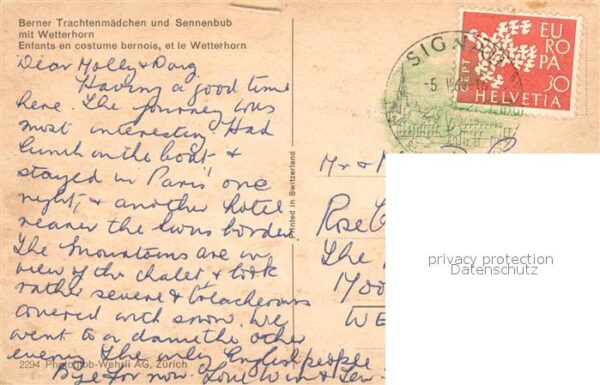 Berner Trachtenmädchen und Sennenbub
mit Wetterhorn
Enfants en costume bernois, et le Wetterhorn
Dear Molly & Doug
Having a good time
here. The journey was
most interesting Had
lunch on the boat &
stayed in Paris one
night, & another hotel
nearer the swiss border
The mountains are in
view of the chalet & look
rather severe & treacherous
covered with snow. We
went to a dance the other
evening The only English people
Bye for now. Love Win &
2294 Photoglob-Wehrli AG, Zürich
Printed in Switzerland
SIGN
-5. 
CEPT
EU
RO
PA
30
HELVETIA
Mr &
Rose
The
Moo
WE
privacy protection
Datenschutz